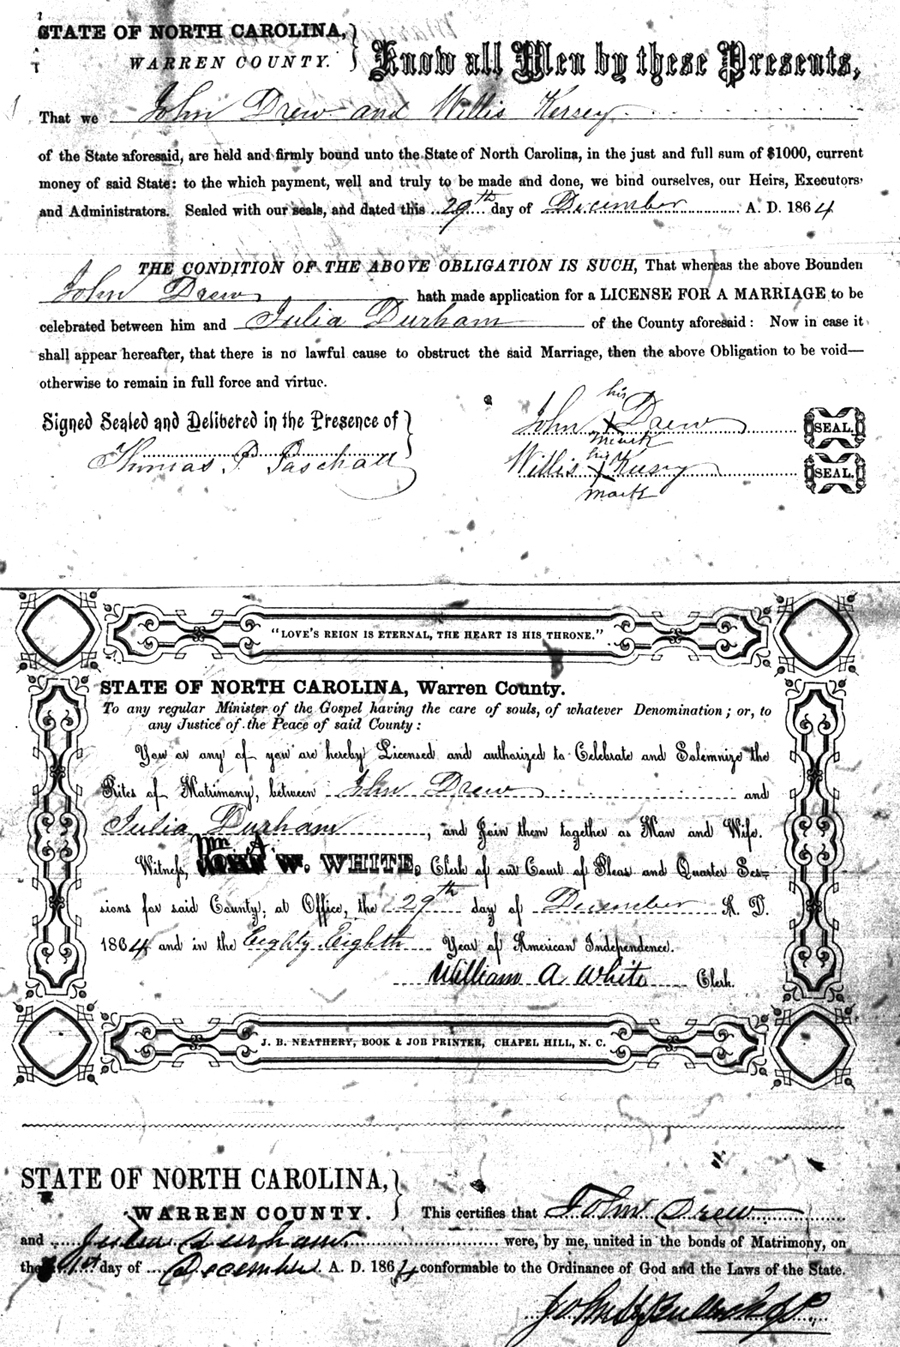 STATE OF NORTH CAROLINA,
WARREN COUNTY.
Know all Men by these Presents,
That we John Drew and Willis Kersey
of the State aforesaid, are held and firmly bound unto the State of North Carolina, in the just and full sum of $1000, current
money of said State: to the which payment, well and truly to be made and done, we bind ourselves, our Heirs, Executors
and Administrators. Sealed with our seals, and dated this 29th day of December A. D. 1864
THE CONDITION OF THE ABOVE OBLIGATION IS SUCH, That whereas the above Bounden
John Drew hath made application for a LICENSE FOR A MARRIAGE to be
celebrated between him and Julia Durham of the County aforesaid: Now in case it
shall appear hereafter, that there is no lawful cause to obstruct the said Marriage, then the above Obligation to be void—
otherwise to remain in full force and virtue.
his
Signed Sealed and Delibered in the Presence of John X Drew SEAL.
mark
his
Thomas P. Paschall Willis X Kersey SEAL.
mark
"LOVE'S REIGN IS ETERNAL, THE HEART IS HIS THRONE."
STATE OF NORTH CAROLINA, Warren County.
To any regular Minister of the Gospel having the care of souls, of whatever Denomination; or, to
any Justice of the Peace of said County:
You or any of you are hereby Licensed and authorized to Celebrate and Solemnize the
Rites of Matrimony, between John Drew and
Julia Durham, and Join them together as Man and Wife.
Wm A
Witness, JOHN W. WHITE, Clerk of our Court of Pleas and Quarter Ses-
sions for said County, at Office, the 29th day of December A. D.
1864 and in the Eighty Eighth Year of American Independence.
William A White Clerk.
J. B. NEATHERY, BOOK & JOB PRINTER, CHAPEL HILL, N. C.
STATE OF NORTH CAROLINA,
WARREN COUNTY. This certifies that John Drew
and Julia Durham were, by me, united in the bonds of Matrimony, on
the day of December A. D. 1864 conformable to the Ordinance of God and the Laws of the State.
John